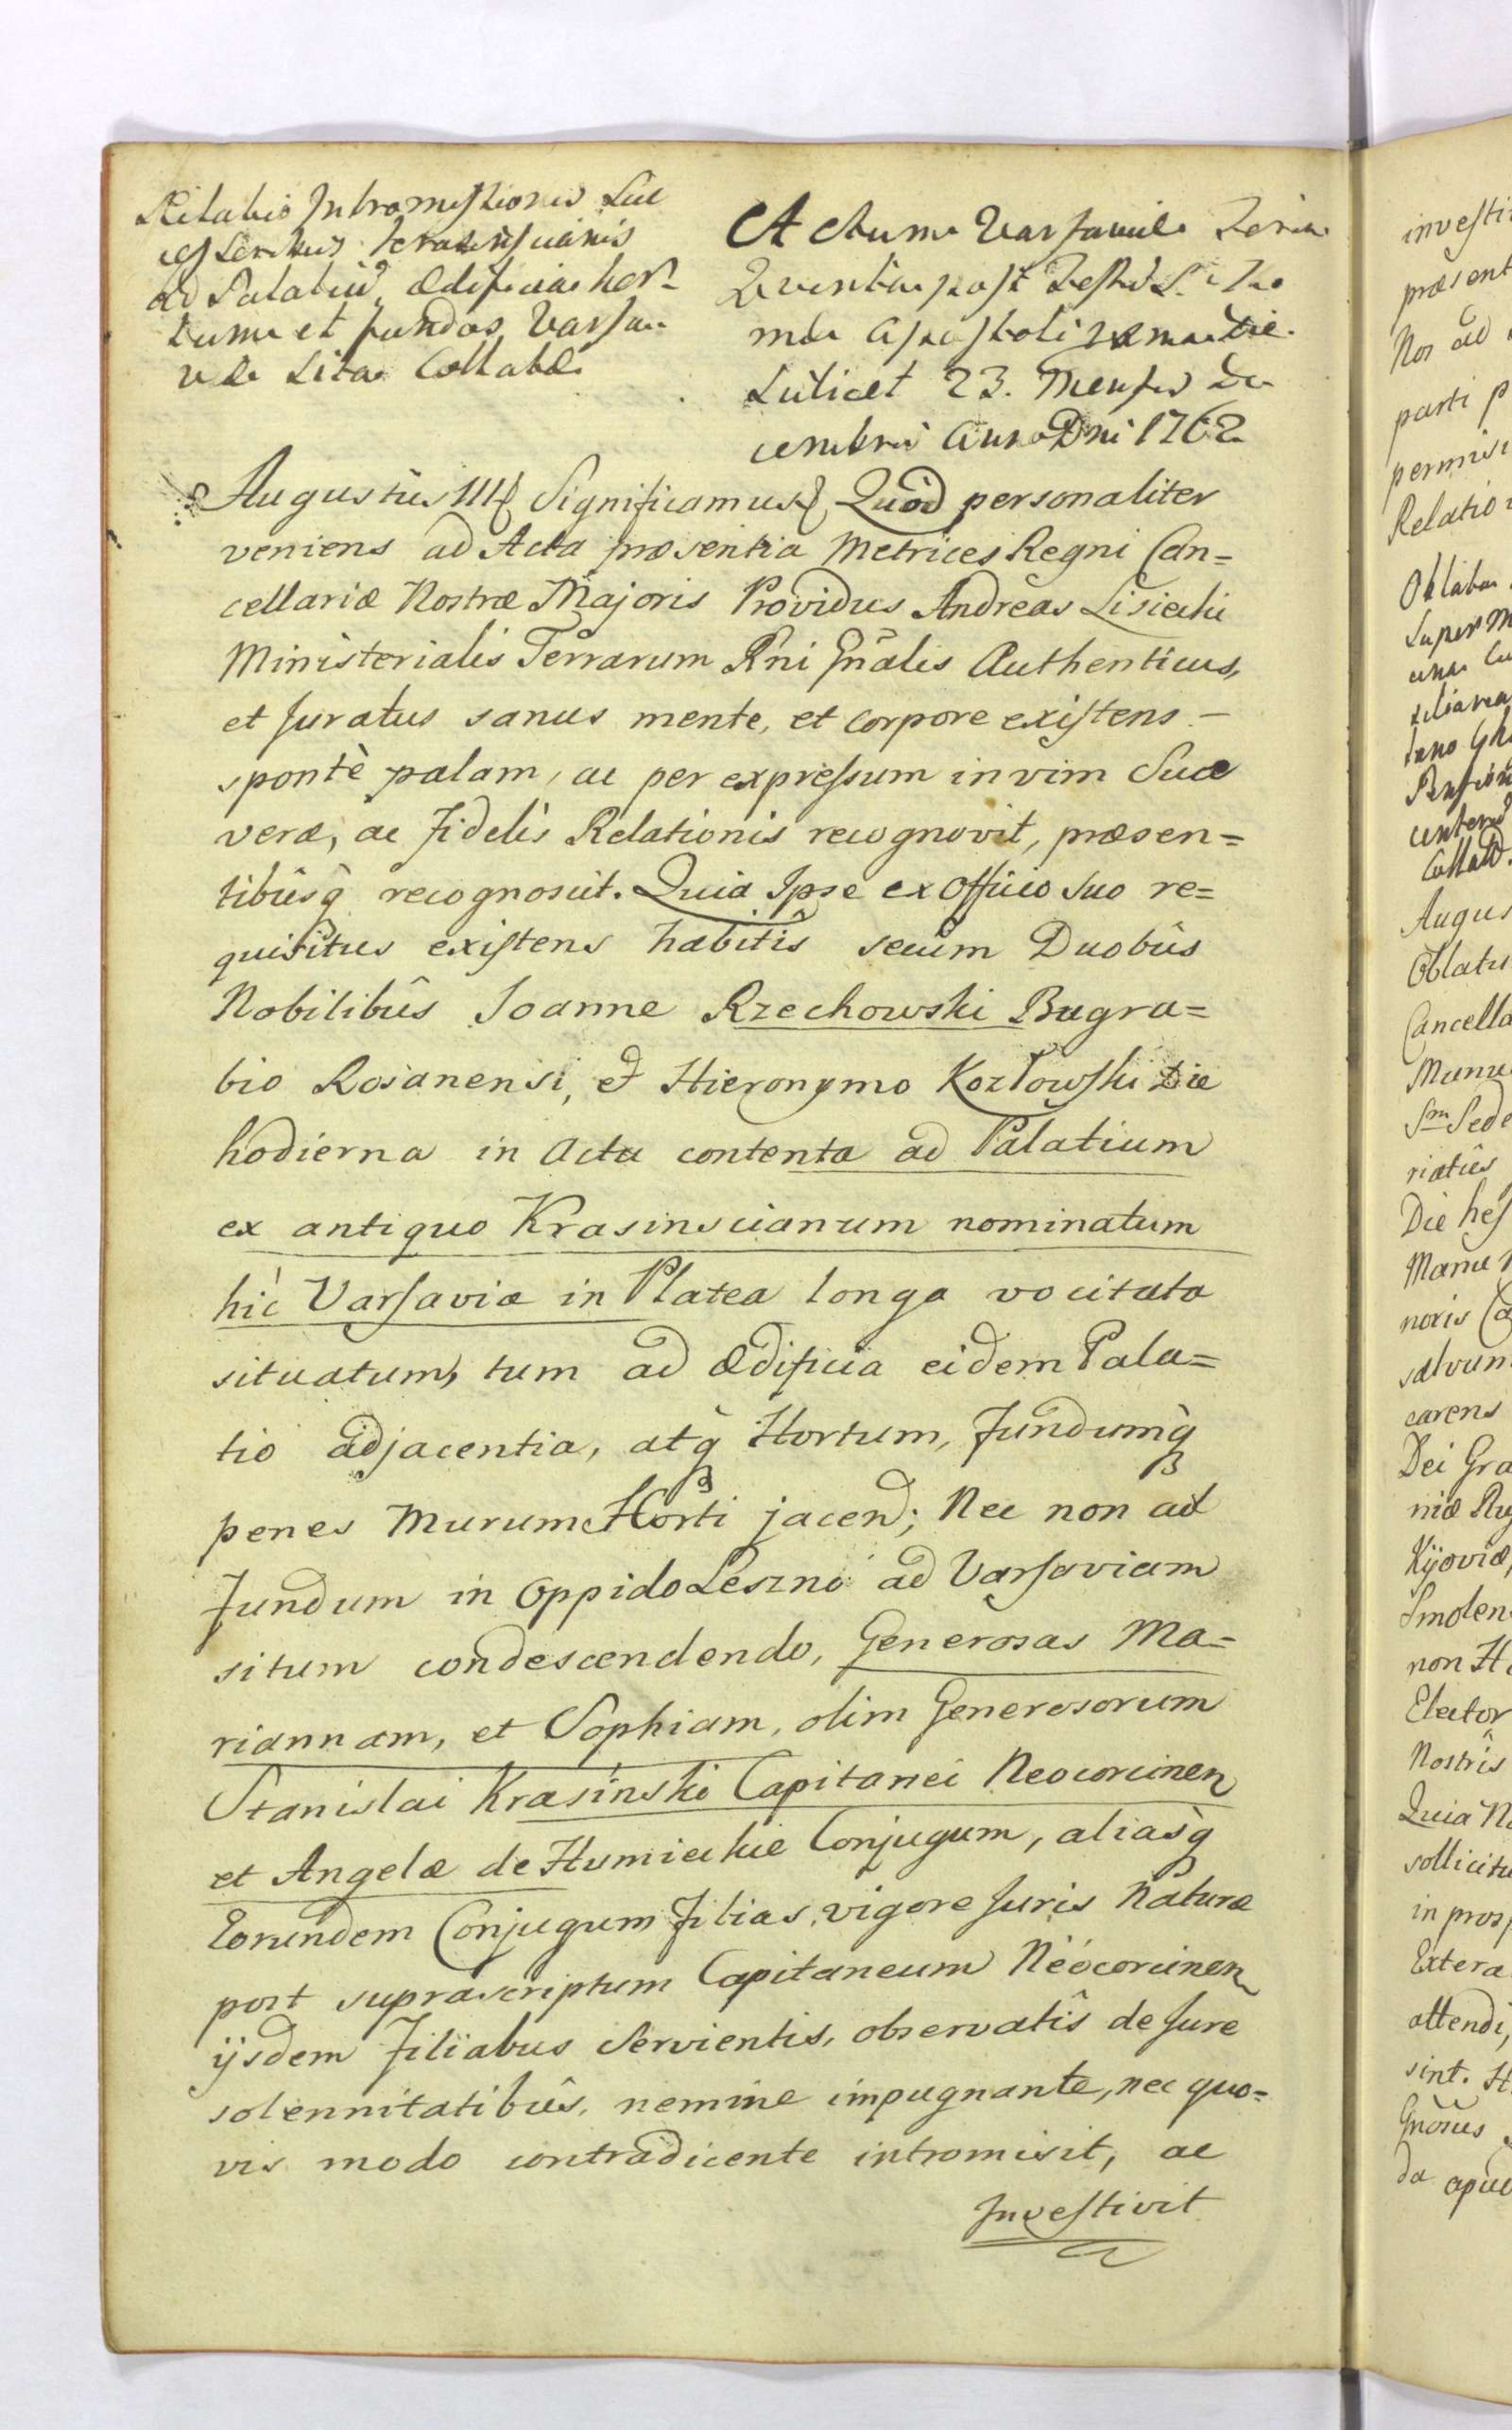 Relatio Intromissionis Suc
cessoribus Krasinscianis
ad Palatiū, Ædificia hor-
tum et fundos Varsa-
viæ sita Collatæ
Actum Varsaviæ Feria
Quinta post Festū S. Tho
mæ Apostoli 1ma die
scilicet 23. Mensis De
cembris Anno Dni 1762
Augustus III Significamus Quòd personaliter
veniens ad Acta præsentia Metrices Regni Can=
cellariæ Nostræ Majoris Providus Andreas Lisiecki
Ministerialis Terrarum Rñi Gñalis Authenticus,
et Juratus sanus mente, et corpore existens –
spontè palam, ac per expressum in vim Suæ
veræ, ac Fidelis Relationis recognovit, præsen=
tibûsq̀ recognoscit. Quia Ipse ex Officio suo re=
quisitus existens habitîs secum Duobûs
Nobilibûs Joanne Rzechowski Bugra=
bio Rosanensi, et Hieronymo Kozłowski Die
hodierna in Actu contenta ad Palatium
ex antiquo Krasinscianum nominatum
hìc Varsaviæ in Platea longa vocitata
situatum, tum ad Ædificia eidem Pala=
tio adjacentia, atq̀ Hortum, Fundumq̀
penes Murum Horti jacend; Nec non ad
Fundum in Oppido Leszno ad Varsaviam
situm condescendendo, Generosas Ma=
riannam, et Sophiam, olim Generosorum
Stanislai Krasinski Capitanei Neocorcinen
et Angelæ de Humieckie Conjugum, aliasq̀
Eorundem Conjugum Filias, vigore Juris Naturæ
post suprascriptum Capitaneum Neocorcinen
ijsdem Filiabus Servientis, observatîs de Jure
solennitatibûs, nemine impugnante, nec quo=
vis modo contradicente intromisit, ac
Investivit
investi
præsent
Nos ad
parti p
permisi
Relatio
Oblata
super
Augus
Oblatu
Cancella
Manu
Sm Sede
riatûs
Die hes
Manu
noris Ca
salvum
carens
Dei Gra
niæ
Kijoviæ,
Smolen
non H
Elector
Nostrîs
Quia N
sollicitu
in prosp
Extera
attendi,
sint. H
Gnosus
da apud